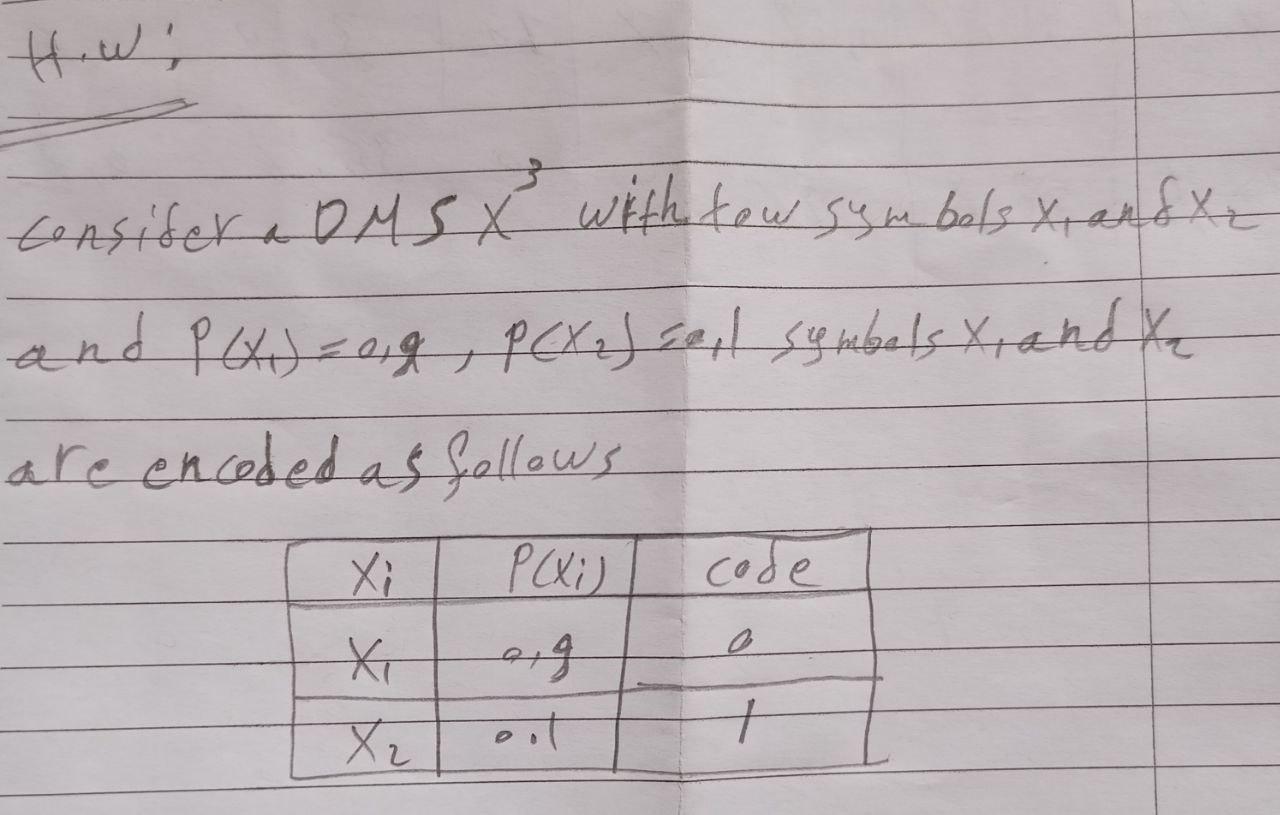 H.W:
consider a DMS X³ with tow symbols X₁ and X₂
and P(X₁) = 0,9 , P(X₂) = 0,1 symbols X₁ and X₂
are encoded as follows
Xi P(Xi) code
X₁ 0,9 0
X₂ 0.1 1